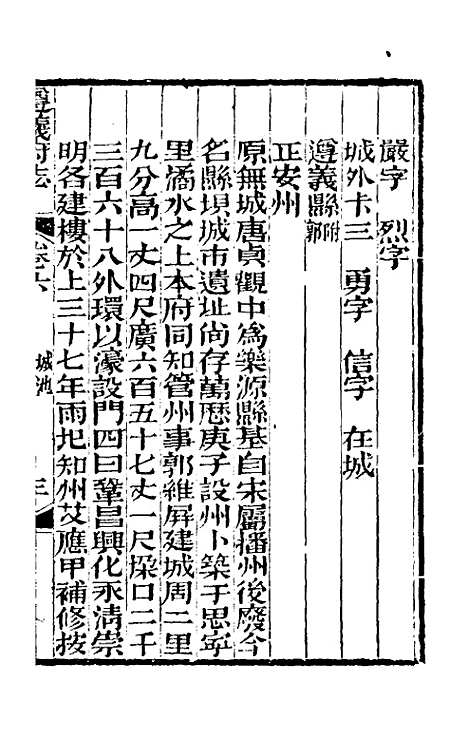 嚴字　烈字
城外卡三　勇字　信字　在城
遵義縣附郭
正安州
原無城唐貞觀中爲樂源縣基自宋屬播州後廢今
名縣垻城市遺址尚存萬厯庚子設州卜築于思寧
里潏水之上本府同知管州事郭維屏建城周二里
九分高一丈四尺廣六百五十七丈一尺垜口二千
三百六十八外環以濠設門四曰鞏昌興化永清崇
明各建樓於上三十七年雨圮知州艾應甲補修按
遵義府志
卷六
城池
三